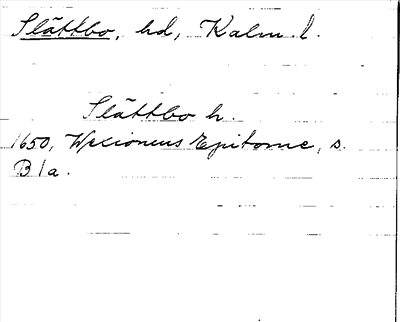 Slättbo, hd, Kalm. l.
Slättbo h.
1650, Wexionius Epitome, s.
B1a.